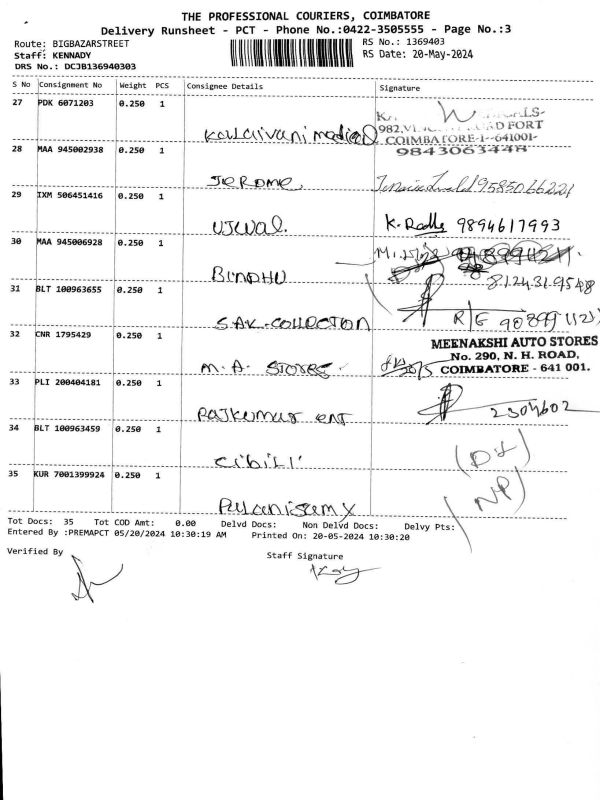 THE PROFESSIONAL COURIERS, COIMBATORE
Delivery Runsheet - PCT - Phone No.:0422-3505555 - Page No.:3
Route: BIGBAZARSTREET RS No.: 1369403
Staff: KENNADY RS Date: 20-May-2024
DRS No.: DCJB136940303
S No Consignment No Weight PCS Consignee Details Signature
27 PDK 6071203 0.250 1
982, ROAD FORT
Kalaivani medical COIMBATORE-1--641001-
28 MAA 945002938 0.250 1 9843063448
Jerome 9585066221
29 IXM 506451416 0.250 1
Ujwal. K. Radha 9894617993
30 MAA 945006928 0.250 1
BINDHU 8124319548
31 BLT 100963655 0.250 1
S.A.K. COLLECTION R/G
32 CNR 1795429 0.250 1 MEENAKSHI AUTO STORES
No. 290, N. H. ROAD,
M.A. STORES. COIMBATORE - 641 001.
33 PLI 200404181 0.250 1
Rajkumar ent 2304602
34 BLT 100963459 0.250 1
Cibili
35 KUR 7001399924 0.250 1 (NP)
Palanisamy
Tot Docs: 35 Tot COD Amt: 0.00 Delvd Docs: Non Delvd Docs: Delvy Pts:
Entered By :PREMAPCT 05/20/2024 10:30:19 AM Printed On: 20-05-2024 10:30:20
Verified By Staff Signature